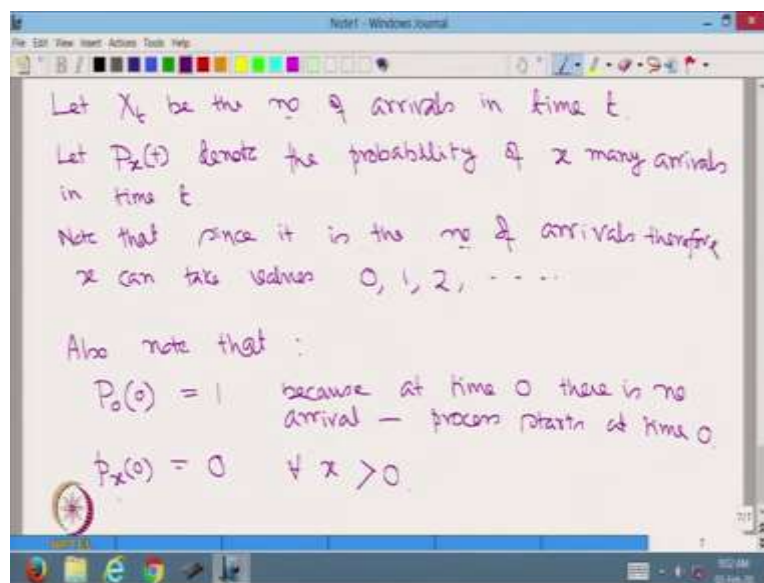 Note1 - Windows Journal
File Edit View Insert Actions Tools Help
Let Xt be the no of arrivals in time t.
Let Px(t) denote the probability of x many arrivals
in time t
Note that since it is the no of arrivals therefore
x can take values 0, 1, 2, - - - -
Also note that :
P0(0) = 1 because at time 0 there is no
arrival — process starts at time 0.
Px(0) = 0 ∀ x > 0.